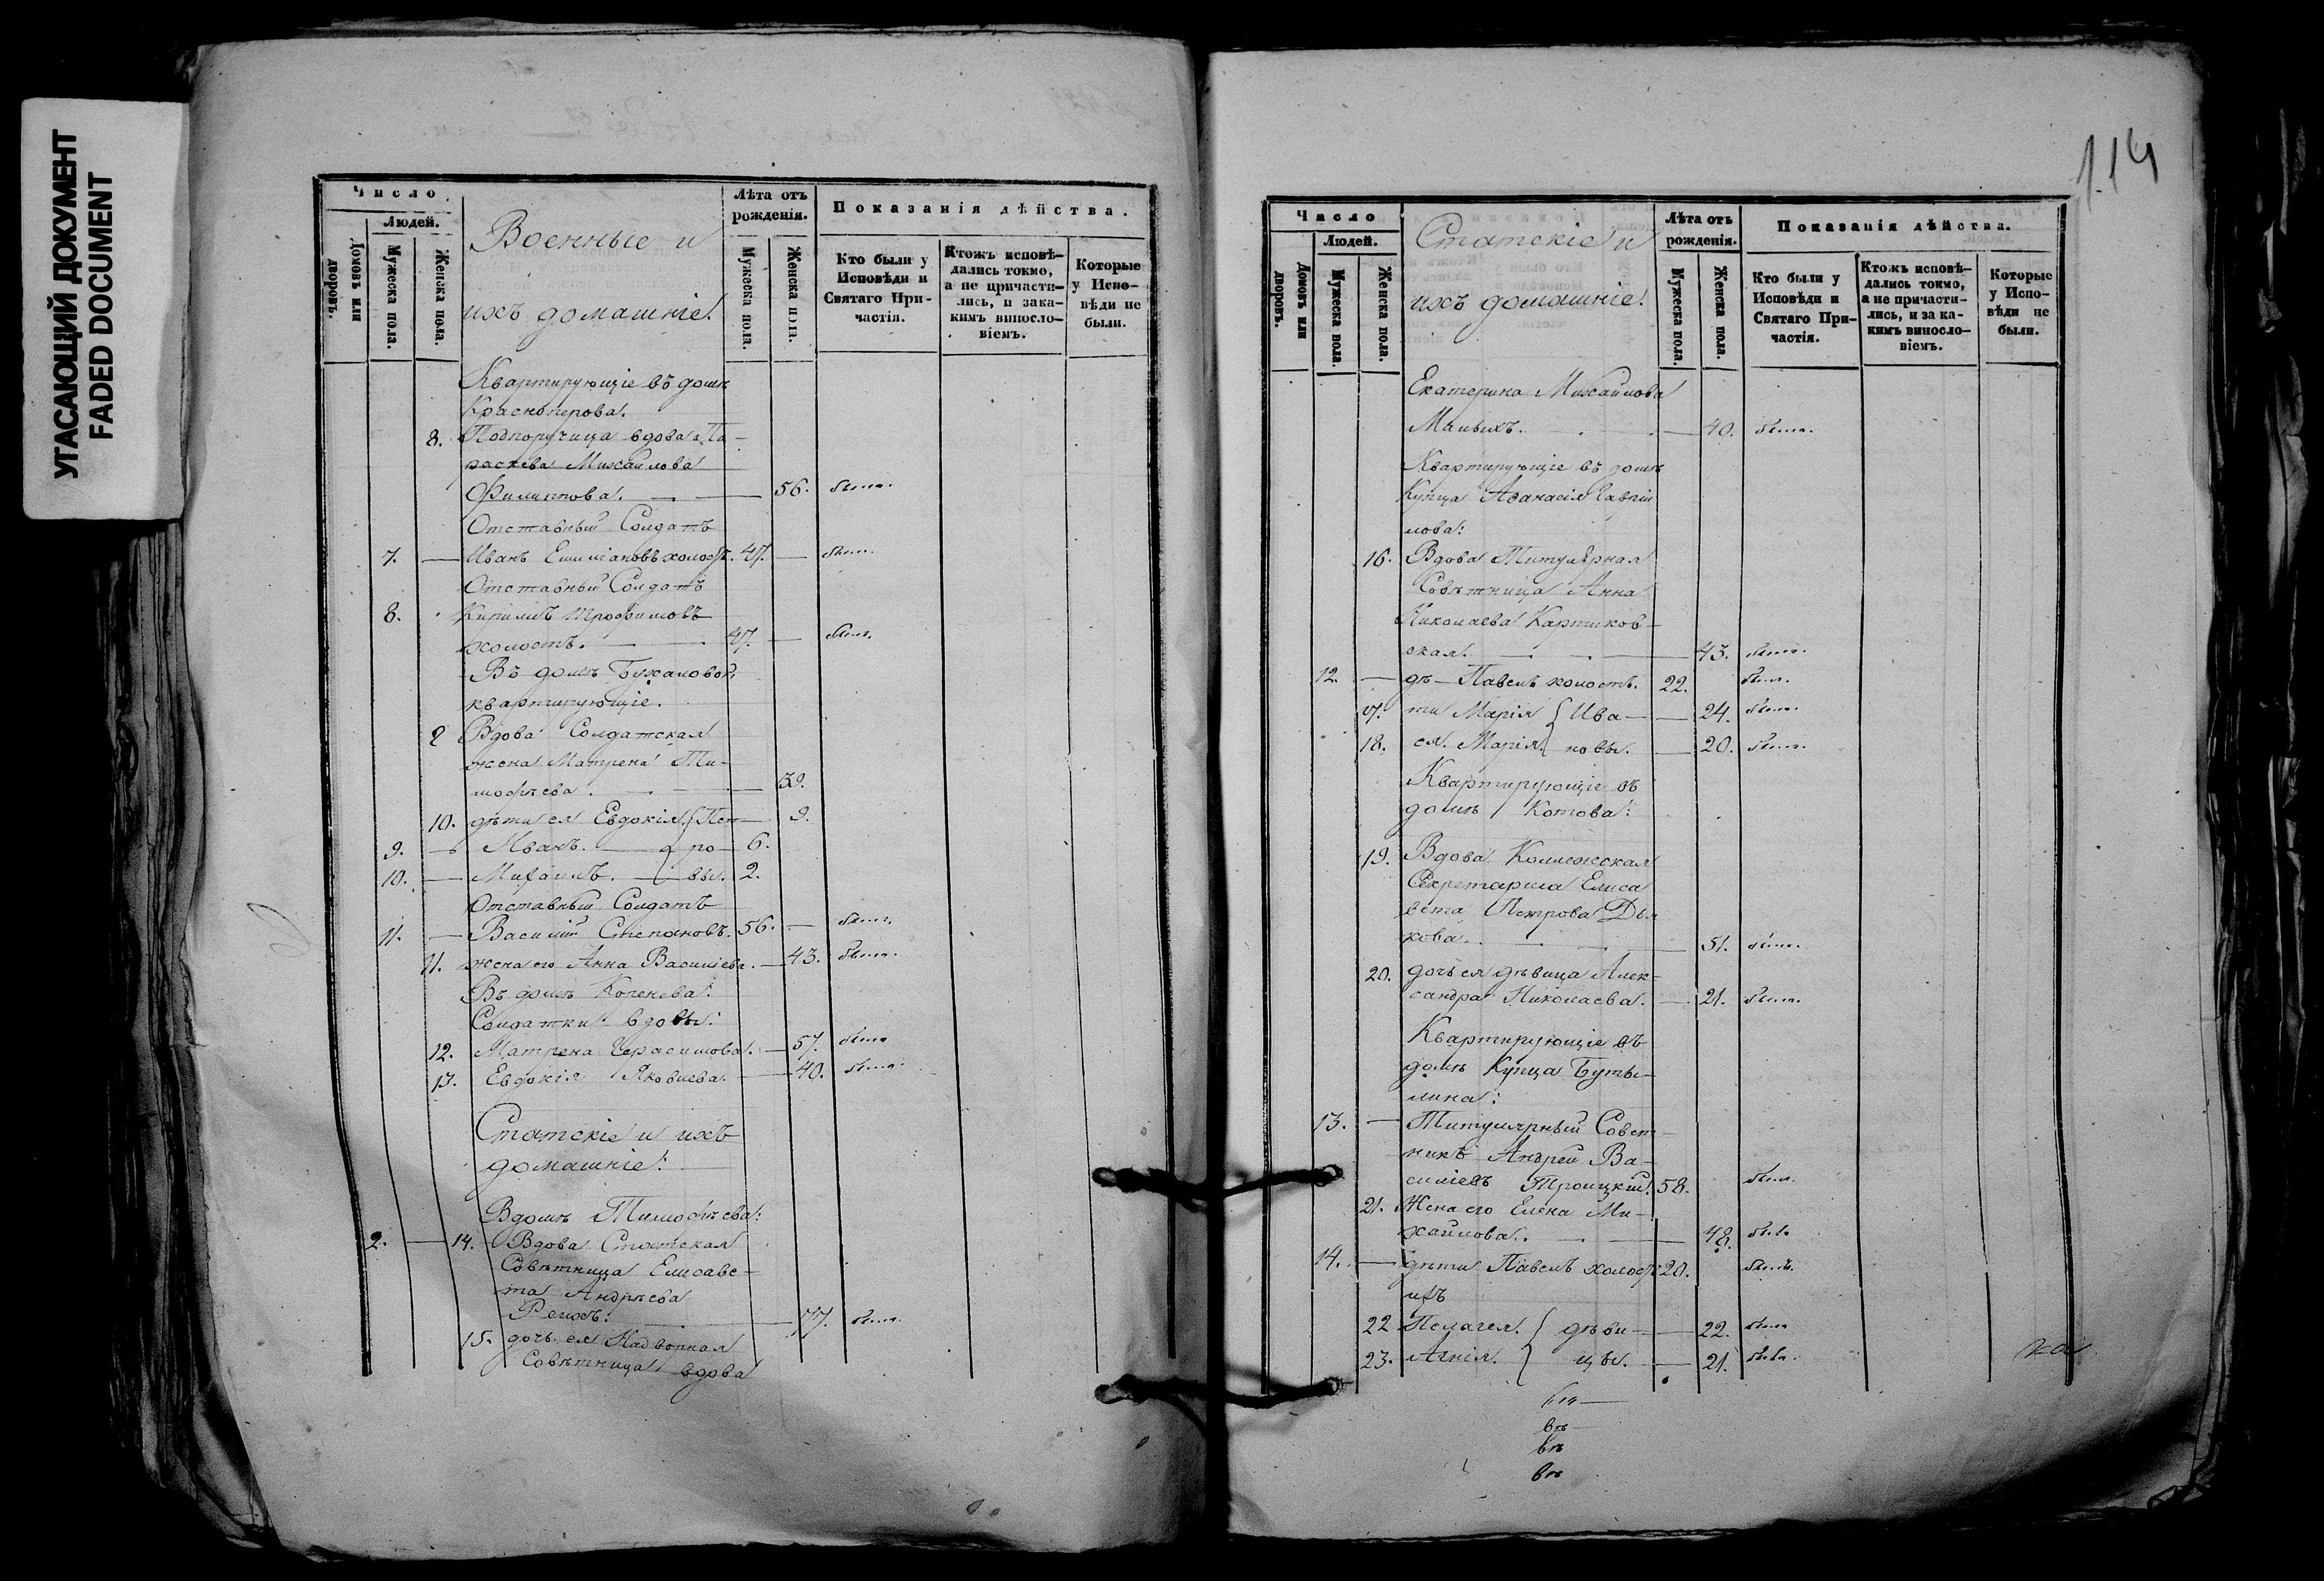 УГАСАЮЩИЙ ДОКУМЕНТ
FADED DOCUMENT
Число
Людей.
Домовъ или дворовъ.
Мужеска пола.
Женска пола.
Военные и
ихъ домашніе.
Лѣта отъ рожденія.
Мужеска пола.
Женска пола.
Показанія дѣйства.
Кто были у Исповѣди и Святаго Причастія.
Ктожъ исповѣдались токмо, а не причастились, и закакимъ винословіемъ.
Которые у Исповѣди не были.
Квартирующіе въ домѣ
Красноперова.
8. Подпоручица вдова Па-
раскева Михайлова
Филиппова. 56. была.
Отставный Солдатъ
7. Иванъ Емиліановъ холостъ. 47. былъ.
Отставный Солдатъ
8. Трофимовъ
холостъ. 47. былъ.
Въ домѣ Бухаловой
квартирующіе.
9 Вдова Солдатская
жена Матрена Ти-
мофѣева. 39.
10. дѣти ея Евдокія. Пет- 9.
9. Иванъ. ро- 6.
10. Михаилъ. вы. 2.
Отставный Солдатъ
11. Василій Степановъ. 56. былъ.
11. жена его Анна Васильева. 43. была.
Въ домѣ Коренева:
Солдатки вдовы:
12. Матрена Герасимова. 57. была
13. Евдокія Яковлева. 40. была.
Статскіе и ихъ
домашніе:
Вдомѣ Тимофѣева:
2. 14. Вдова Статская
Совѣтница Елисаве-
та Андрѣева
77. была.
15. дочь ея Надворная
Совѣтница вдова
114
Число
Людей.
Домовъ или дворовъ.
Мужеска пола.
Женска пола.
Статскіе и
ихъ домашніе.
Лѣта отъ рожденія.
Мужеска пола.
Женска пола.
Показанія дѣйства.
Кто были у Исповѣди и Святаго Причастія.
Ктожъ исповѣдались токмо, а не причастились, и за какимъ винословіемъ.
Которые у Исповѣди не были.
Екатерина Михайлова
40. была.
Квартирующіе въ домѣ
Купца Аѳанасія Гаврии
лова:
16. Вдова Титулярная
Совѣтница Анна
Николаева Картиков-
ская. 43. была.
12. дѣ- Павелъ холостъ. 22. былъ.
17. ти Марія Ива- 24. была.
18. ея. Марія. новы. 20. была.
Квартирующіе въ
домѣ Котова:
19. Вдова Коллежская
Секретарша Елиса
вета Петрова Ды
кова. 51. была.
20. дочь ея дѣвица Алек-
сандра Николаева. 21. была.
Квартирующіе въ
домѣ Купца Буты-
лина:
13. Титулярный Совет-
никъ Андрей Ва-
силіевъ Троицкій. 58. былъ.
21. Жена его Елена Ми-
хайлова. 48. была
14. дѣти Павелъ холост 20. былъ.
ихъ
22 Пелагея. дѣви- 22. была
23. Агнія. цы. 21. была.